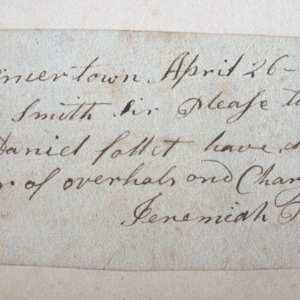 town. April 26 -
Smith Sir Please to
Daniel follet have
of overhals and Char
Jeremiah